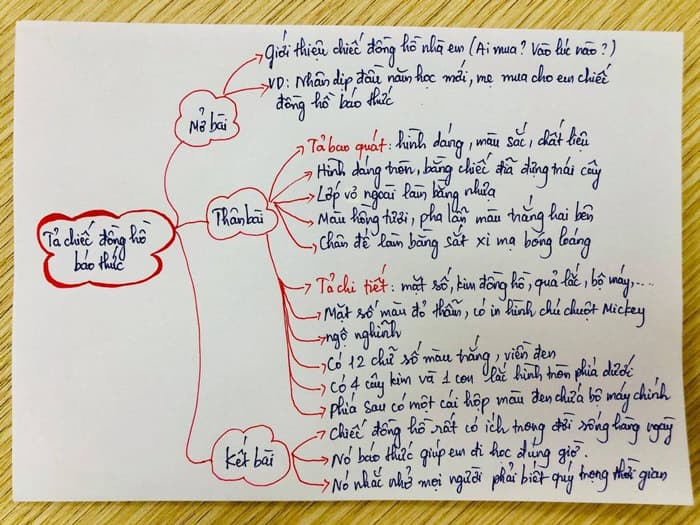 Giới thiệu chiếc đồng hồ nhà em (Ai mua? Vào lúc nào?)
VD: Nhân dịp đầu năm học mới, mẹ mua cho em chiếc
đồng hồ báo thức
Mở bài
Tả bao quát: hình dáng, màu sắc, chất liệu
Hình dáng tròn, bằng chiếc đĩa đựng trái cây
Lớp vỏ ngoài làm bằng nhựa
Màu hồng tươi, pha lẫn màu trắng hai bên
Chân đế làm bằng sắt xi mạ bóng loáng
Thân bài
Tả chiếc đồng hồ
báo thức
Tả chi tiết: mặt số, kim đồng hồ, quả lắc, bộ máy,....
Mặt số màu đỏ thẫm, có in hình chú chuột Mickey
ngộ nghĩnh
Có 12 chữ số màu trắng, viền đen
Có 4 cây kim và 1 con lắc hình tròn phía dưới
Phía sau có một cái hộp màu đen chứa bộ máy chính
Chiếc đồng hồ rất có ích trong đời sống hàng ngày
Kết bài
Nó báo thức giúp em đi học đúng giờ.
Nó nhắc nhở mọi người phải biết quý trọng thời gian